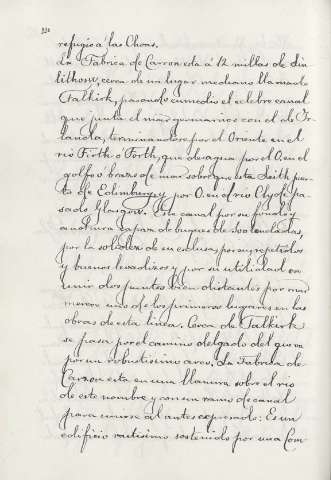 320
refugio á las Chozas.
La Fabrica de Carron está á 12 millas de Lin
lithow, cerca de un lugar mediano llamado
Falkirk, pasando en medio el celebre canal
que junta el mar germanico con el de Ir-
landa, terminandose por el Oriente en el
rio Firth o Forth, que desagua por el O. en el
golfo ó brazo de mar sobre que esta Leith puer-
to de Edimburgo y por O. en el rio Clyde pa-
sado Glasgow. Este canal por su fondo y
anchura capaz de buques de 80 toneladas,
por la solidez de sus esclusas, por sus repetidos
y buenos levadizos y por su utilidad en
unir dos puntos bien distantes por mar
merece uno de los primeros lugares en las
obras de esta linea. Cerca de Falkirk
se pasa por el camino delgado del que va
por un robustisimo arco. La Fabrica de
Carron esta en una llanura sobre el rio
de este nombre y con un ramo de canal
para unirse al antes expresado: Es un
edificio vastisimo sostenido por una Com